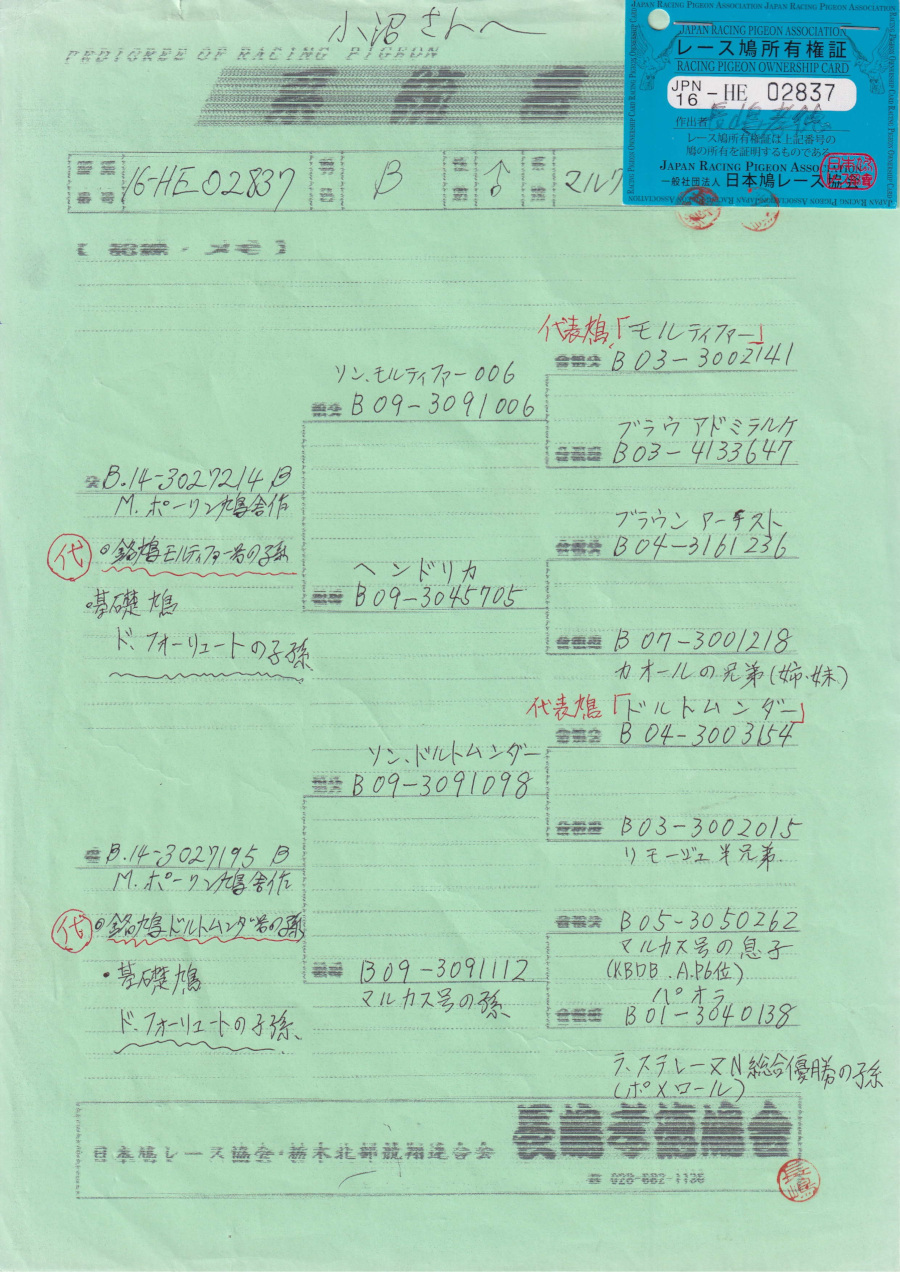 小沼さんへ
PEDIGREE OF RACING PIGEON
系統書
JAPAN RACING PIGEON ASSOCIATION
レース鳩所有権証
RACING PIGEON OWNERSHIP CARD
JPN 16 - HE 02837
作出者
レース鳩所有権証は上記番号の
鳩の所有を証明するものである
JAPAN RACING PIGEON ASSOCIATION
一般社団法人 日本鳩レース協会
16-HE02837 B ♂ マルク
【記録・メモ】
代表鳩「モルティファー」
B03-3002141
ソン、モルティファー006
B09-3091006
ブラウ アドミラルケ
B03-4133647
父 B.14-3027214 B
M.ポーリン鳩舎作
代 ○銘鳩モルティファー号の子孫
・基礎鳩
ド.フォーリュートの子孫
ブラウン アーチスト
B04-3161236
ヘンドリカ
B09-3045705
B07-3001218
カオールの兄弟(姉・妹)
代表鳩「ドルトムンダー」
B04-3003154
ソン、ドルトムンダー
B09-3091098
B03-3002015
リモージュ半兄弟.
B.14-3027195 B
M.ポーリン鳩舎作
代 ○銘鳩ドルトムンダ号の子孫
・基礎鳩
ド.フォーリュートの子孫、
B05-3050262
マルカス号の息子
(KBDB.A.P6位)
B09-3091112
マルカス号の孫
パオラ
B01-3040138
ラ、ステレーヌN総合優勝の子孫
(ポメロール)
日本鳩レース協会・栃木北部競翔連合会 長嶋孝徳鳩舎
☎ 028-682-1136
長嶋